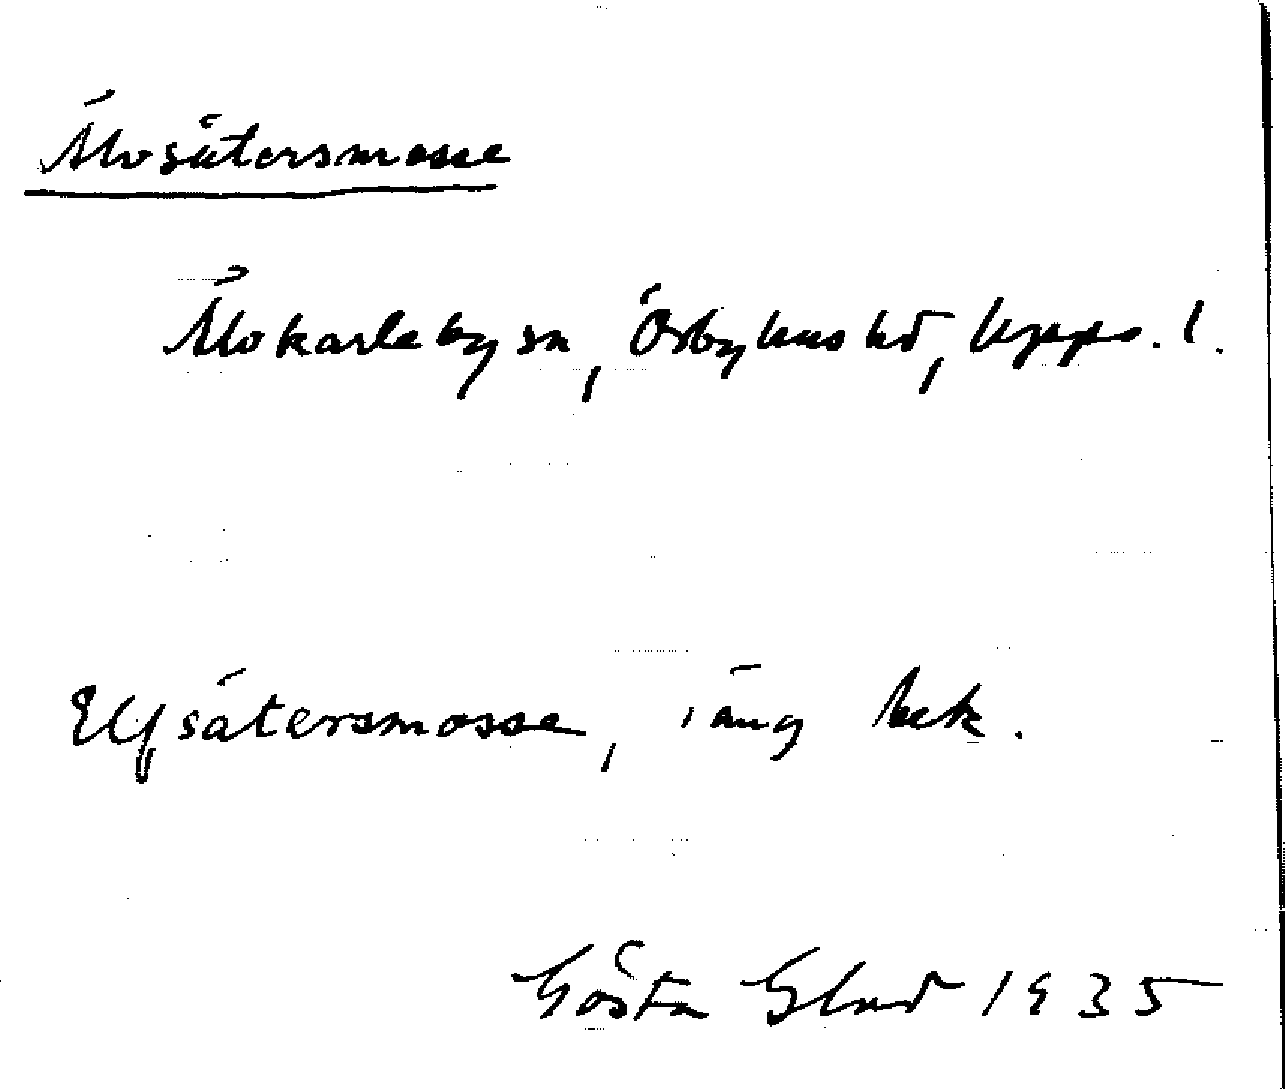 Älvsätersmosse
Älvkarleby sn, Örbyhus hd, Upps. l.
Elfsätersmosse, i äng bek.
Gösta 1935